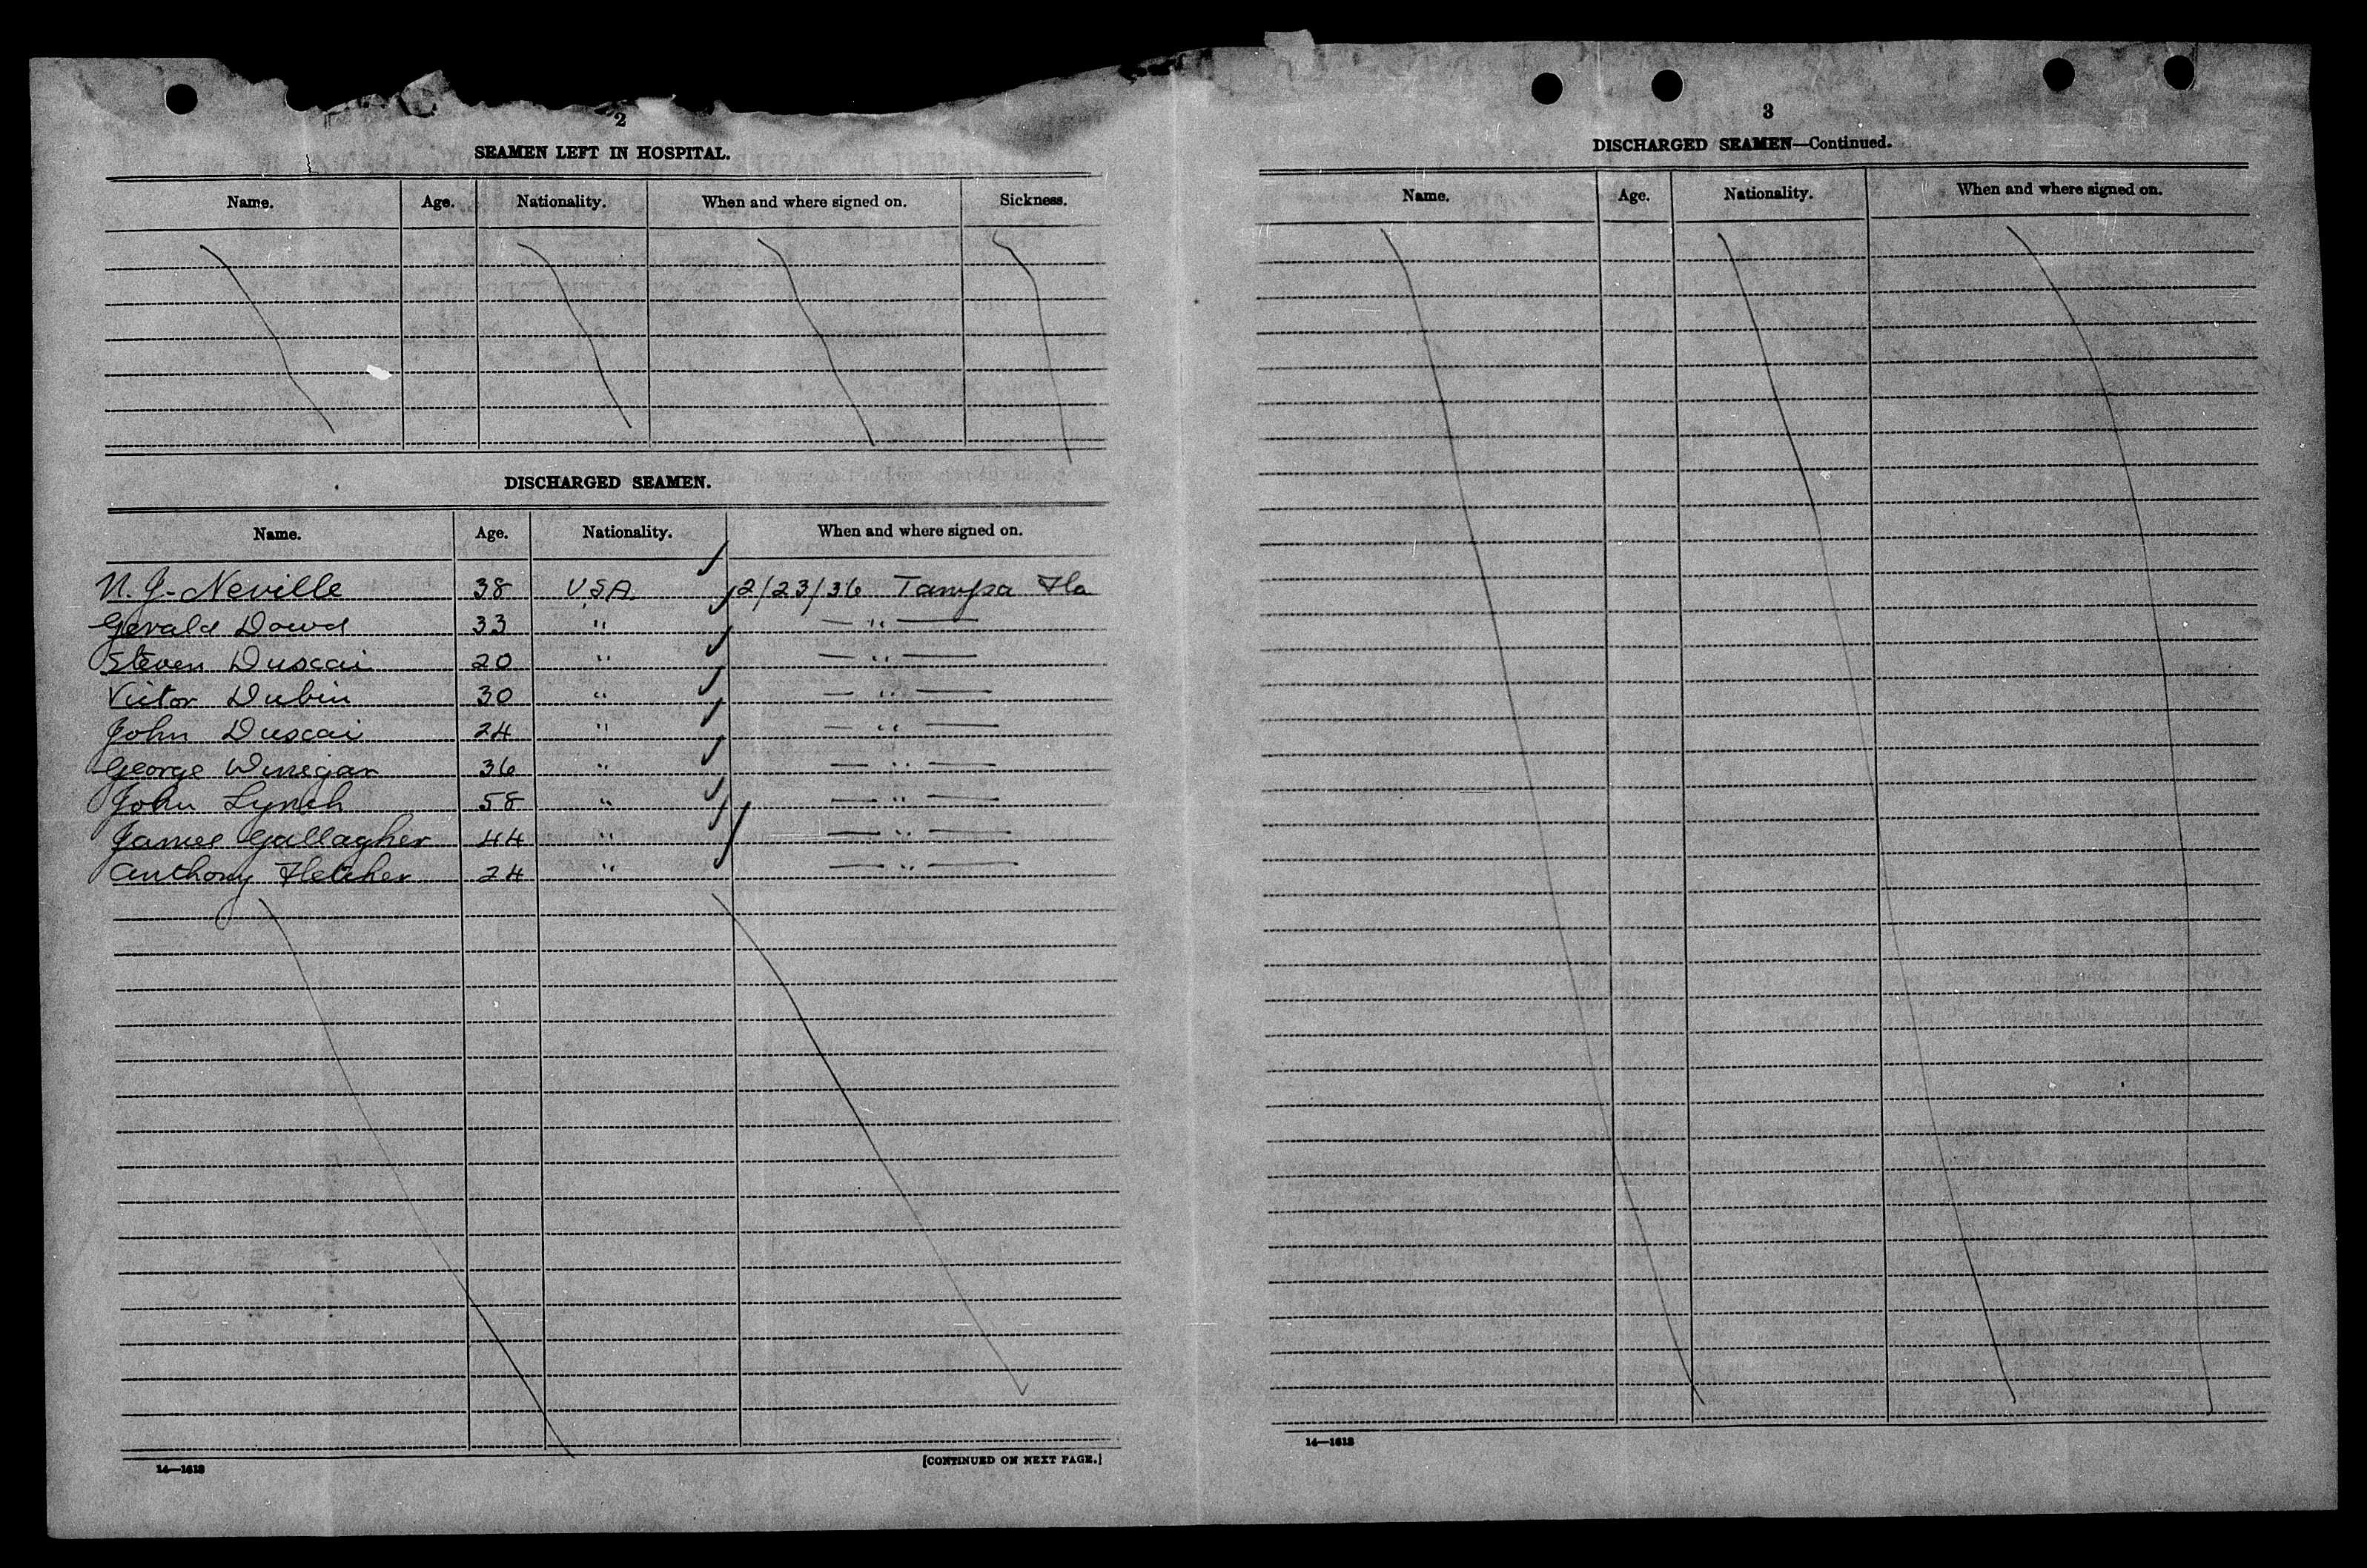 2
SEAMEN LEFT IN HOSPITAL.
Name. Age. Nationality. When and where signed on. Sickness.
DISCHARGED SEAMEN.
Name. Age. Nationality. When and where signed on.
N. J. Neville 38 USA 12/23/36 Tampa Fla
Gerald Dowd 33 " — " —
Steven Duscai 20 " — " —
Victor Dubin 30 " — " —
John Duscai 24 " — " —
George Winegar 36 " — " —
John Lynch 58 " — " —
James Gallagher 44 " — " —
Anthony Fletcher 24 " — " —
14—1613
[CONTINUED ON NEXT PAGE.]
3
DISCHARGED SEAMEN—Continued.
Name. Age. Nationality. When and where signed on.
14—1613